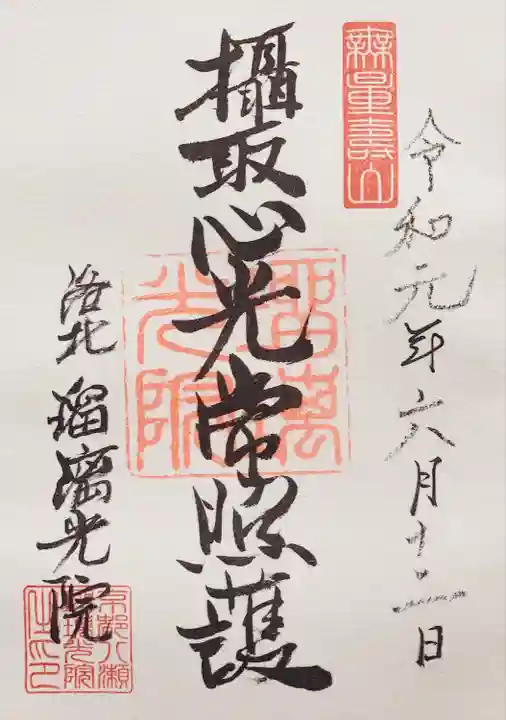 無量壽山
令和元年六月十二日
攝取心光常照護
瑠璃光院
洛北 瑠璃光院
京都八瀬
瑠璃光院
之印